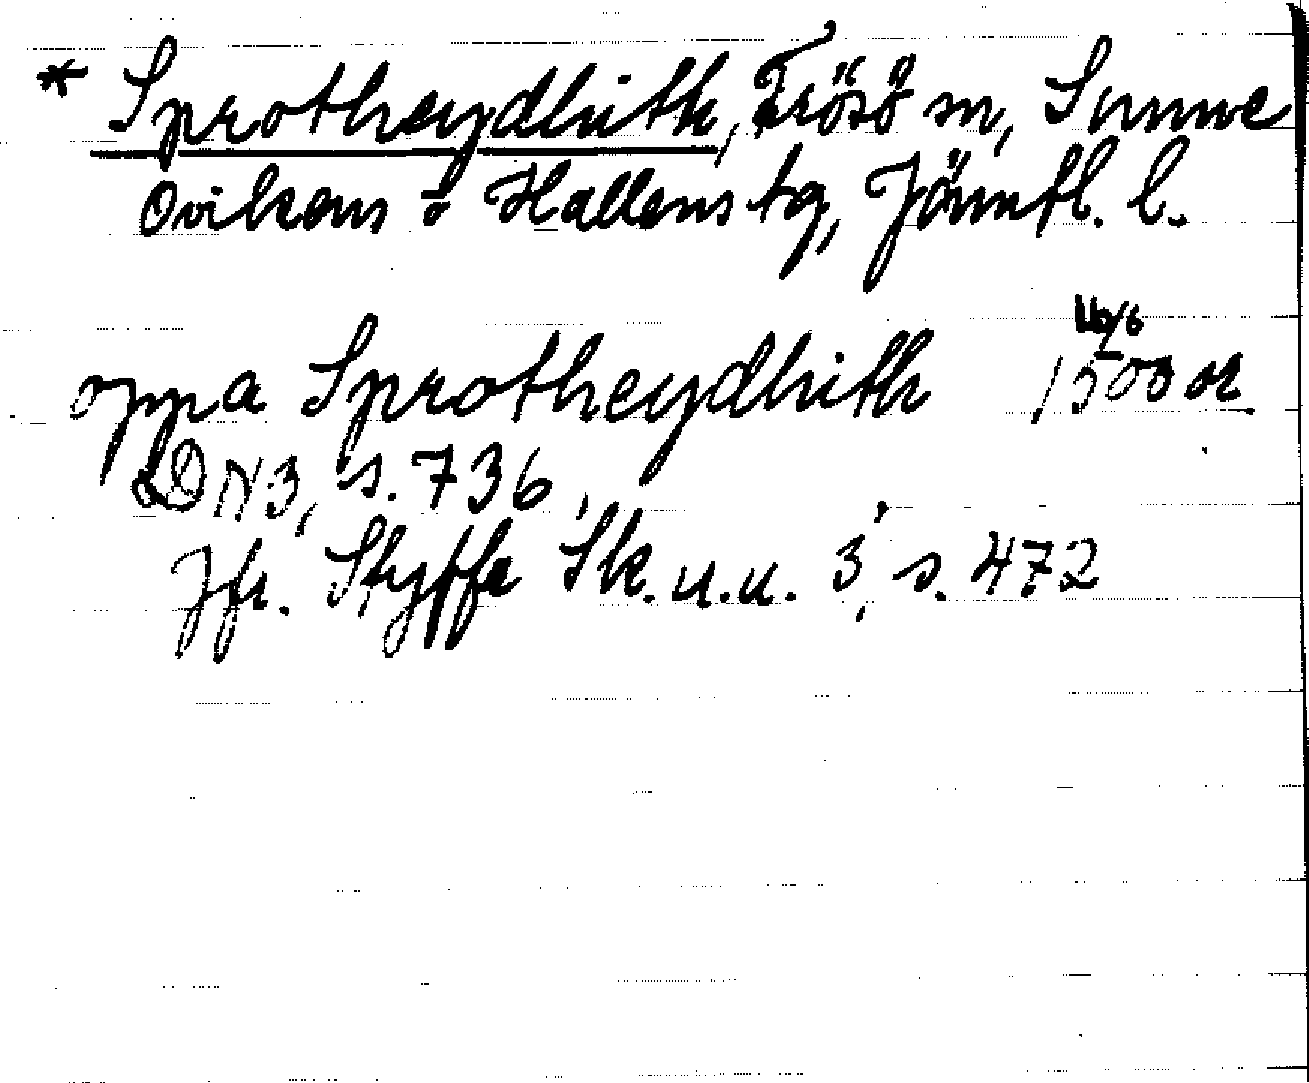 * Sprotheydhith, Frösö sn, Sunne
Ovikens o Hallens tg, Jämtl. l.
oppa Sprotheydhith 16/6 1503 or
DN 3, s. 736,
Jfr. Styffe Sk. u. u. 3, s. 472